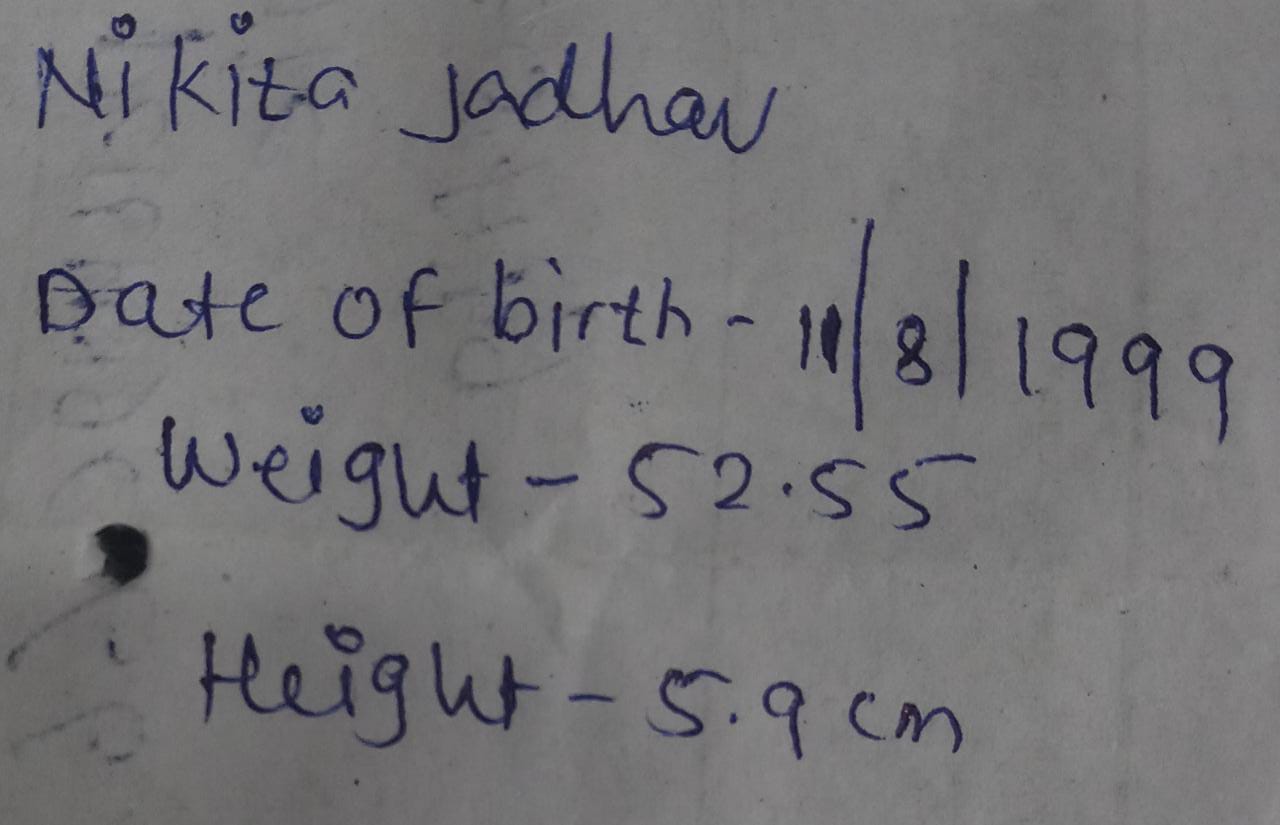 Nikita Jadhav
Date of birth - 11/8/1999
Weight - 52.55
Height - 5.9 cm